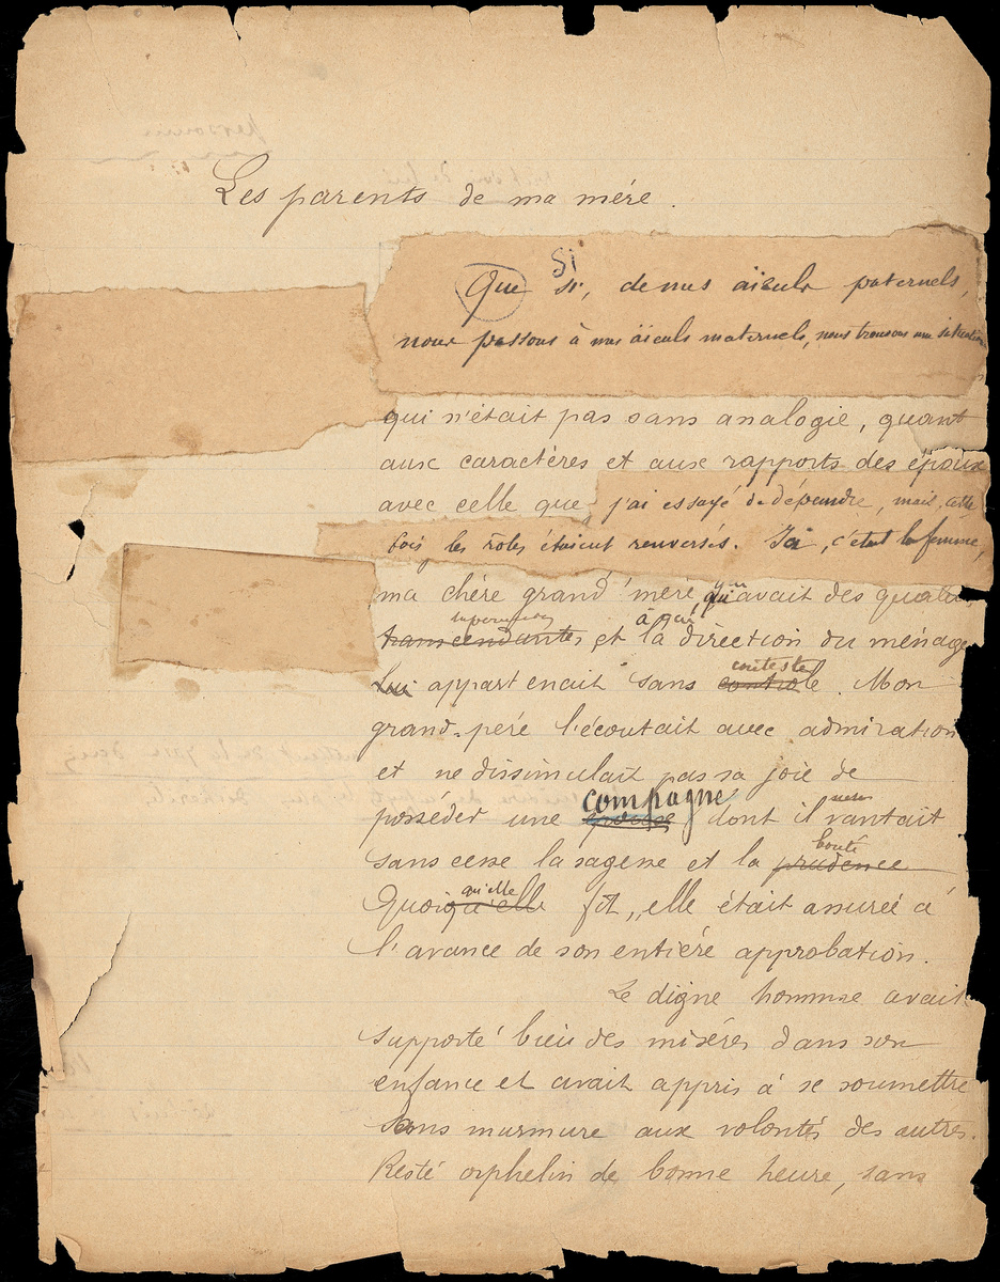 Les parents de ma mére.
Si
Que si, de nus aïeuls paternels,
nous passons à nus aïeuls maternels, nous trouvons une situation
qui n'était pas sans analogie, quant
aux caractères et aux rapports des époux
avec celle que j'ai essayé de dépeindre, mais, cette
fois les rôles étaient renversés. Ici, c'était la femme,
ma chére grand'mére, qui avait des qualités
à qui
transcendantes et la direction du ménage
conteste
Lui appartenait sans controle. Mon
grand-pére l'écoutait avec admiration
et ne dissimulait pas sa joie de
compagne
posséder une épouse dont il vantait
bonté
sans cesse la sagesse et la prudence
qu'elle
Quoiqu'elle fit, elle était assurée à
l'avance de son entiére approbation.
Le digne homme avait
supporté bien des miséres dans son
enfance et avait appris à se soumettre
sans murmure aux volontés des autres.
Resté orphelin de bonne heure, sans